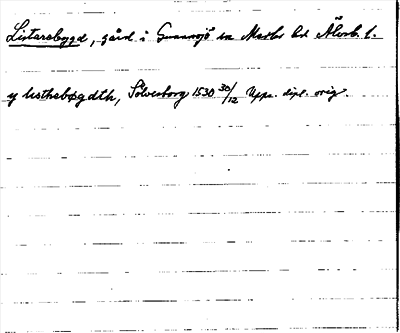 Listarsbygd, gård i Gunnarsjö sn Marks hd Älvsb. l.
y listhsbøgdth, Sölvesborg 1530 30/12 Upps. dipl. orig.